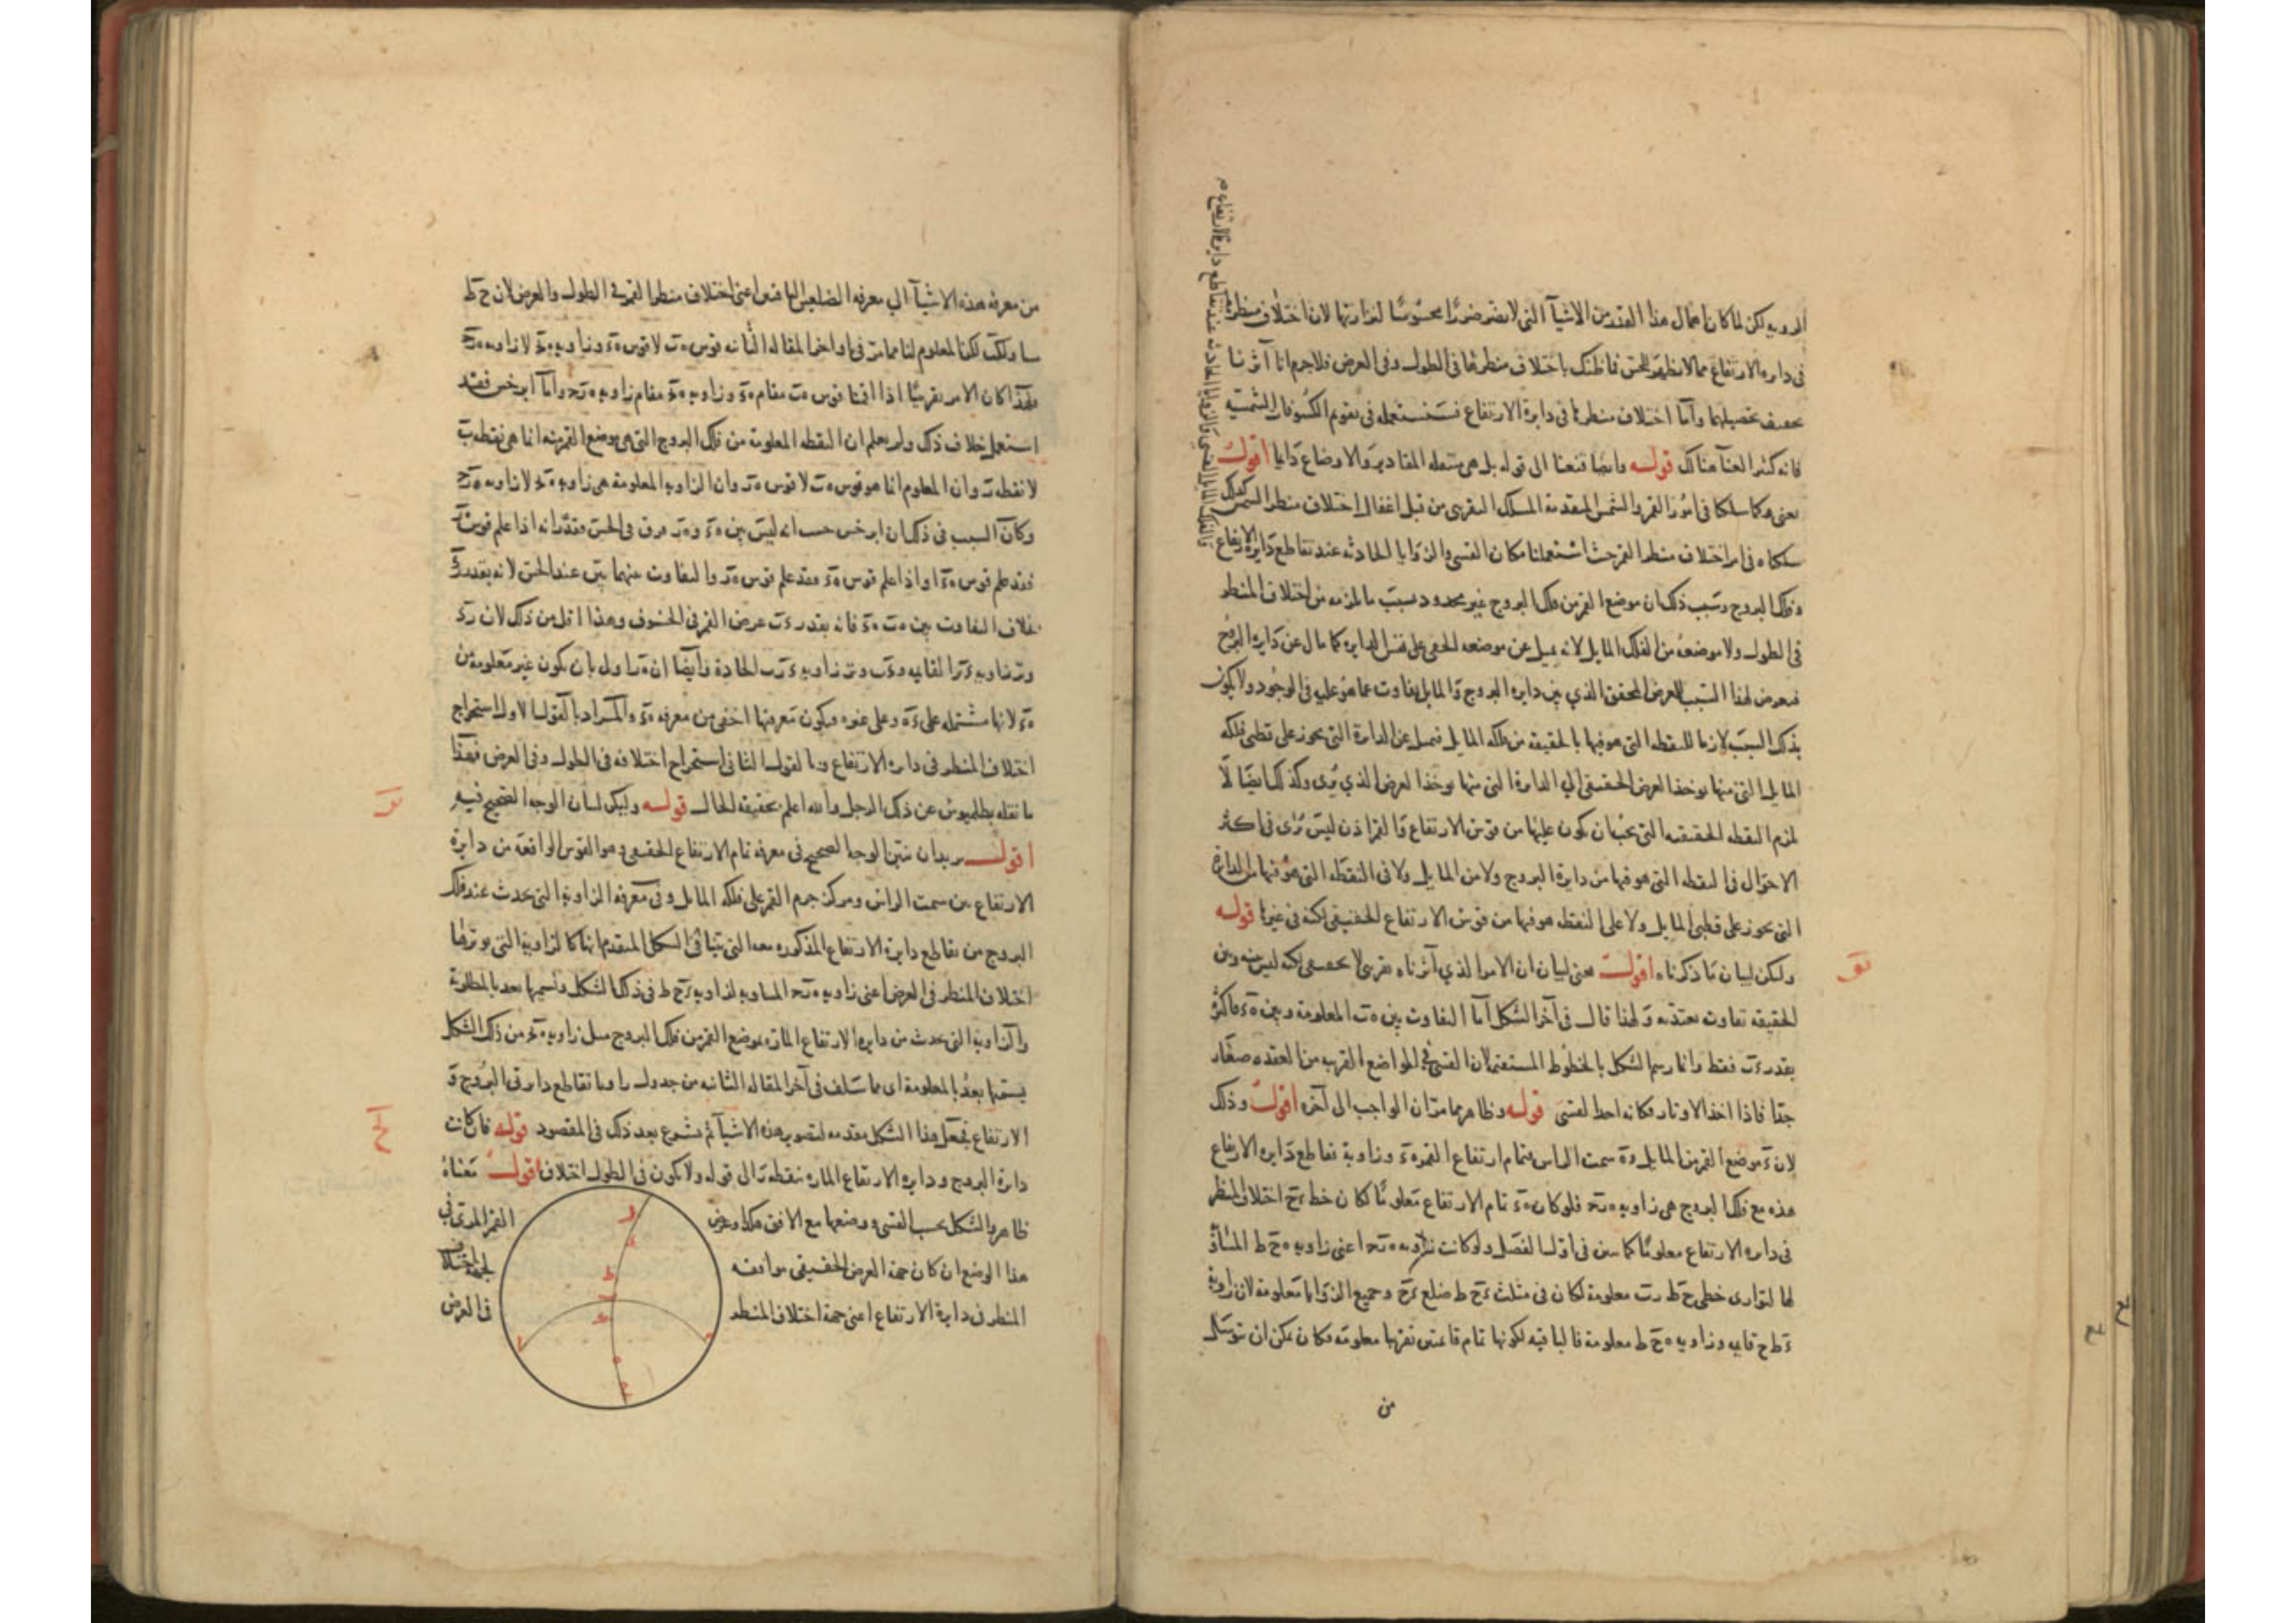 الدويه لكن لما كان اهمال هذا القدر من الاشيآ التى لا يضر ضررًا محسوسًا لنزارتها لان اختلاف منظره
فى دايره الارتفاع مما لا يظهر للحس فما ظنك باختلاف منظرها فى الطول وفى العرض فلا جرم انا آثرنا
تحصيلها وآما اختلاف منظرها فى دايرة الارتفاع فسنستعمله فى تقويم الكسوفات الشمسية
فانه كثير العنآ هناك قولــه وايضا قنعنا الى قوله بل هى المقادير والاوضاع دايما اقولــ
يعنى وكما سلكنا فى امور القمر والشمس المتقدمة المسلك التقريبى من قبل اغفال اختلاف منظر الشمس كذلك
سلكناه فى امر اختلاف منظر القمر حيث استعملنا مكان القسى والزوايا الحادثه عند تقاطع دايرة الارتفاع
وفلك البروج وسبب ذلك ان موضع القمر من فلك البروج غير محدود بسبب ما يلزمه من اختلاف المنظر
فى الطول ولا موضعه من الفلك المايل لانه يميل عن موضعه الحقى على نفس الدايره كما مال عن دايرة البروج
فيعرض لهذا السبب للعرض المحقق الذي بين دايره البروج والمايل تفاوت عما هو عليه فى الوجود ولا يكون
بذلك السبب لازما للنقطه التى هو فيها بالحقيقه من فلكه المايل فيميل عن الدايرة التى تجوز على قطبى فلكه
المايل التى منها يوخذ العرض الحقيقى الي الدايرة التى منها يوخذ العرض الذي يُرى وكذلك ايضا لا
يلزم النقطه الحقيقيه التى يجب ان يكون عليها من قوس الارتفاع فالقمر اذن ليس يُرى فى اكثر
الاحوال فى النقطه التى هو فيها من دايرة البروج ولا من المايل ولا فى النقطه التى هو فيها من الدايرة
التى تجوز على قطبى المايل ولا على النقطه هو فيها من قوس الارتفاع الحقيقى لكنه فى غيرها قولــه
وليكن لبيان ما ذكرناه اقولــ يعنى لبيان ان الامر الذي آثرناه تقريبى لا تحقيقى لكنه ليس بينه وبين
الحقيقه تفاوت يعتد به ولهذا قال فى آخر الشكل آما التفاوت بين هب المعلومة وبين هء فاكثره
بقدر ءب فقط وانما رسم الشكل بالخطوط المستقيمه لان القسى فى المواضع القريبه من العقده صغار
جدا فاذا اخذ الاوتار فكانه اخذ القسى قولــه وظاهر مما مر ان الواجب الى آخره اقولــ وذلك
لان ء موضع القمر من المايل و ه سمت الراس فتمام ارتفاع القمر هء وزاوية تقاطع دايره الارتفاع
هذه مع فلك البروج هى زاويه هزج فلو كان هء تمام الارتفاع معلومًا لكان خط ءح اختلاف المنظر
فى دايره الارتفاع معلومًا كما تبين فى اول الفصل ولو كانت زاويه هزح اعنى زاويه هح ط المساوية
لها لتوازى خطى ح ط زب معلومة لكان فى مثلث ءح ط ضلع ءح وجميع الزوايا معلومة لان زاوية
ءطح قايمه وزاويه هح ط معلومة فالباقيه لكونها تمام قائمتين نفرضها معلومه فكان يمكن ان نتوصل
من
من معرفه هذه الاشيآ الي معرفه الضلعين الباقيين اعنى اختلاف منظر القمر فى الطول والعرض لان ح ط
لكن المعلوم لنا مما مر فى اواخر المقاله الثانيه قوس هب لا قوس هء وزاويه
فلهذا كان الامر تقريبيًا اذا اقمنا قوس هب مقام هء وزاويه مقام زاويه هزح وآما ابرخس فقد
استعمل خلاف ذلك ولم يعلم ان النقطه المعلومة من فلك البروج التى هى موضع القمر منه انما هى نقطه ب
لا نقطه ز وان المعلوم انما هو قوس هب لا قوس هز وان الزاويه المعلومة هى زاويه لا زاويه هزح
وكان السبب فى ذلك ان ابرخس حسب انه ليس بين هء وهز فرق فى الحس وقدّر انه اذا علم قوس هز
فقد علم قوس هء او اذا علم قوس هء فقد علم قوس هز والتفاوت بينهما بيّن عند الحس لانه بقدر زء
بخلاف التفاوت بين هب هء فانه بقدر ءب عرض القمر فى الخسوف وهذا اقل من ذلك لان زء
وتر زاويه القايمه وءب وتر زاويه ءزب الحادة وآيضا ان هز اولى بان يكون غير معلومة من
هء لانها مشتمله على ءه وعلى غيره فيكون معرفتها اخفى من معرفه هء والمراد بالقول الاول استخراج
اختلاف المنظر فى دايره الارتفاع وبالقول الثانى استخراج اختلافه فى الطول وفى العرض فهذا
ما نقله بطلميوس عن ذلك الرجل والله اعلم بحقيقه الحال قولــه وليكن لبيان الوجه الصحيح فيه
اقولــ يريد ان نبين الوجه الصحيح فى معرفه تمام الارتفاع الحقيقى وهو القوس الواقعة من دايرة
الارتفاع بين سمت الراس ومركز جرم القمر على فلكه المايل وفى معرفة الزاوية التى تحدث عند فلك
البروج من تقاطع دايرة الارتفاع المذكوره معه التى بيّنا فى الشكل المتقدم انها كالزاوية التى يوترها
اختلاف المنظر فى العرض اعنى زاويه هزح المساويه لزاويه ءح ط فى ذلك الشكل وآسميها بعد بالمطلوبة
والزاوية التى تحدث من دايره الارتفاع المارة بموضع القمر من فلك البروج مثل زاويه من ذلك الشكل
يسميها بعد بالمعلومة اى مما سلف فى آخر المقاله الثانيه من جدول زوايا تقاطع دايرتى البروج و
الارتفاع فجعل هذا الشكل مقدمه لتصوير هذه الاشيآ ثم يشرع بعد ذلك فى المقصود قولــه فان كانت
دايرة البروج ودايره الارتفاع المارة بنقطه ز الى قوله ولا يكون فى الطول اختلاف اقولــ معناه
ظاهر والشكل بحسب القسى ووضعها مع الافق هكذا وعرض القمر المرئى فى
هذا الوضع ان كان جهة العرض الحقيقى موافقه لجهة اختلاف
المنظر فى دايرة الارتفاع اعنى جهة اختلاف المنظر فى العرض